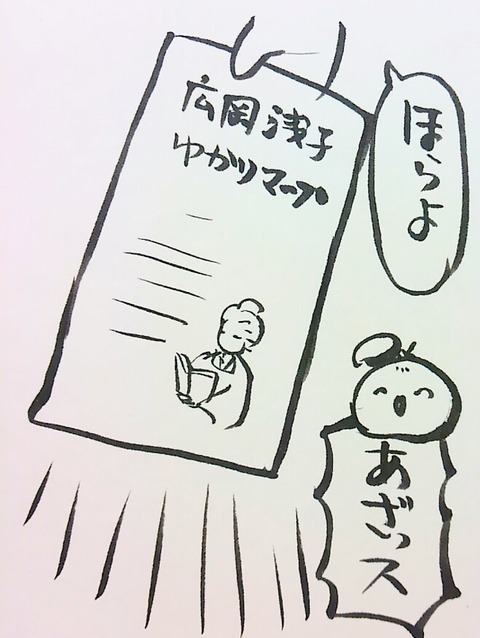 ほらよ
広岡浅子
ゆかりマップ
あざっス